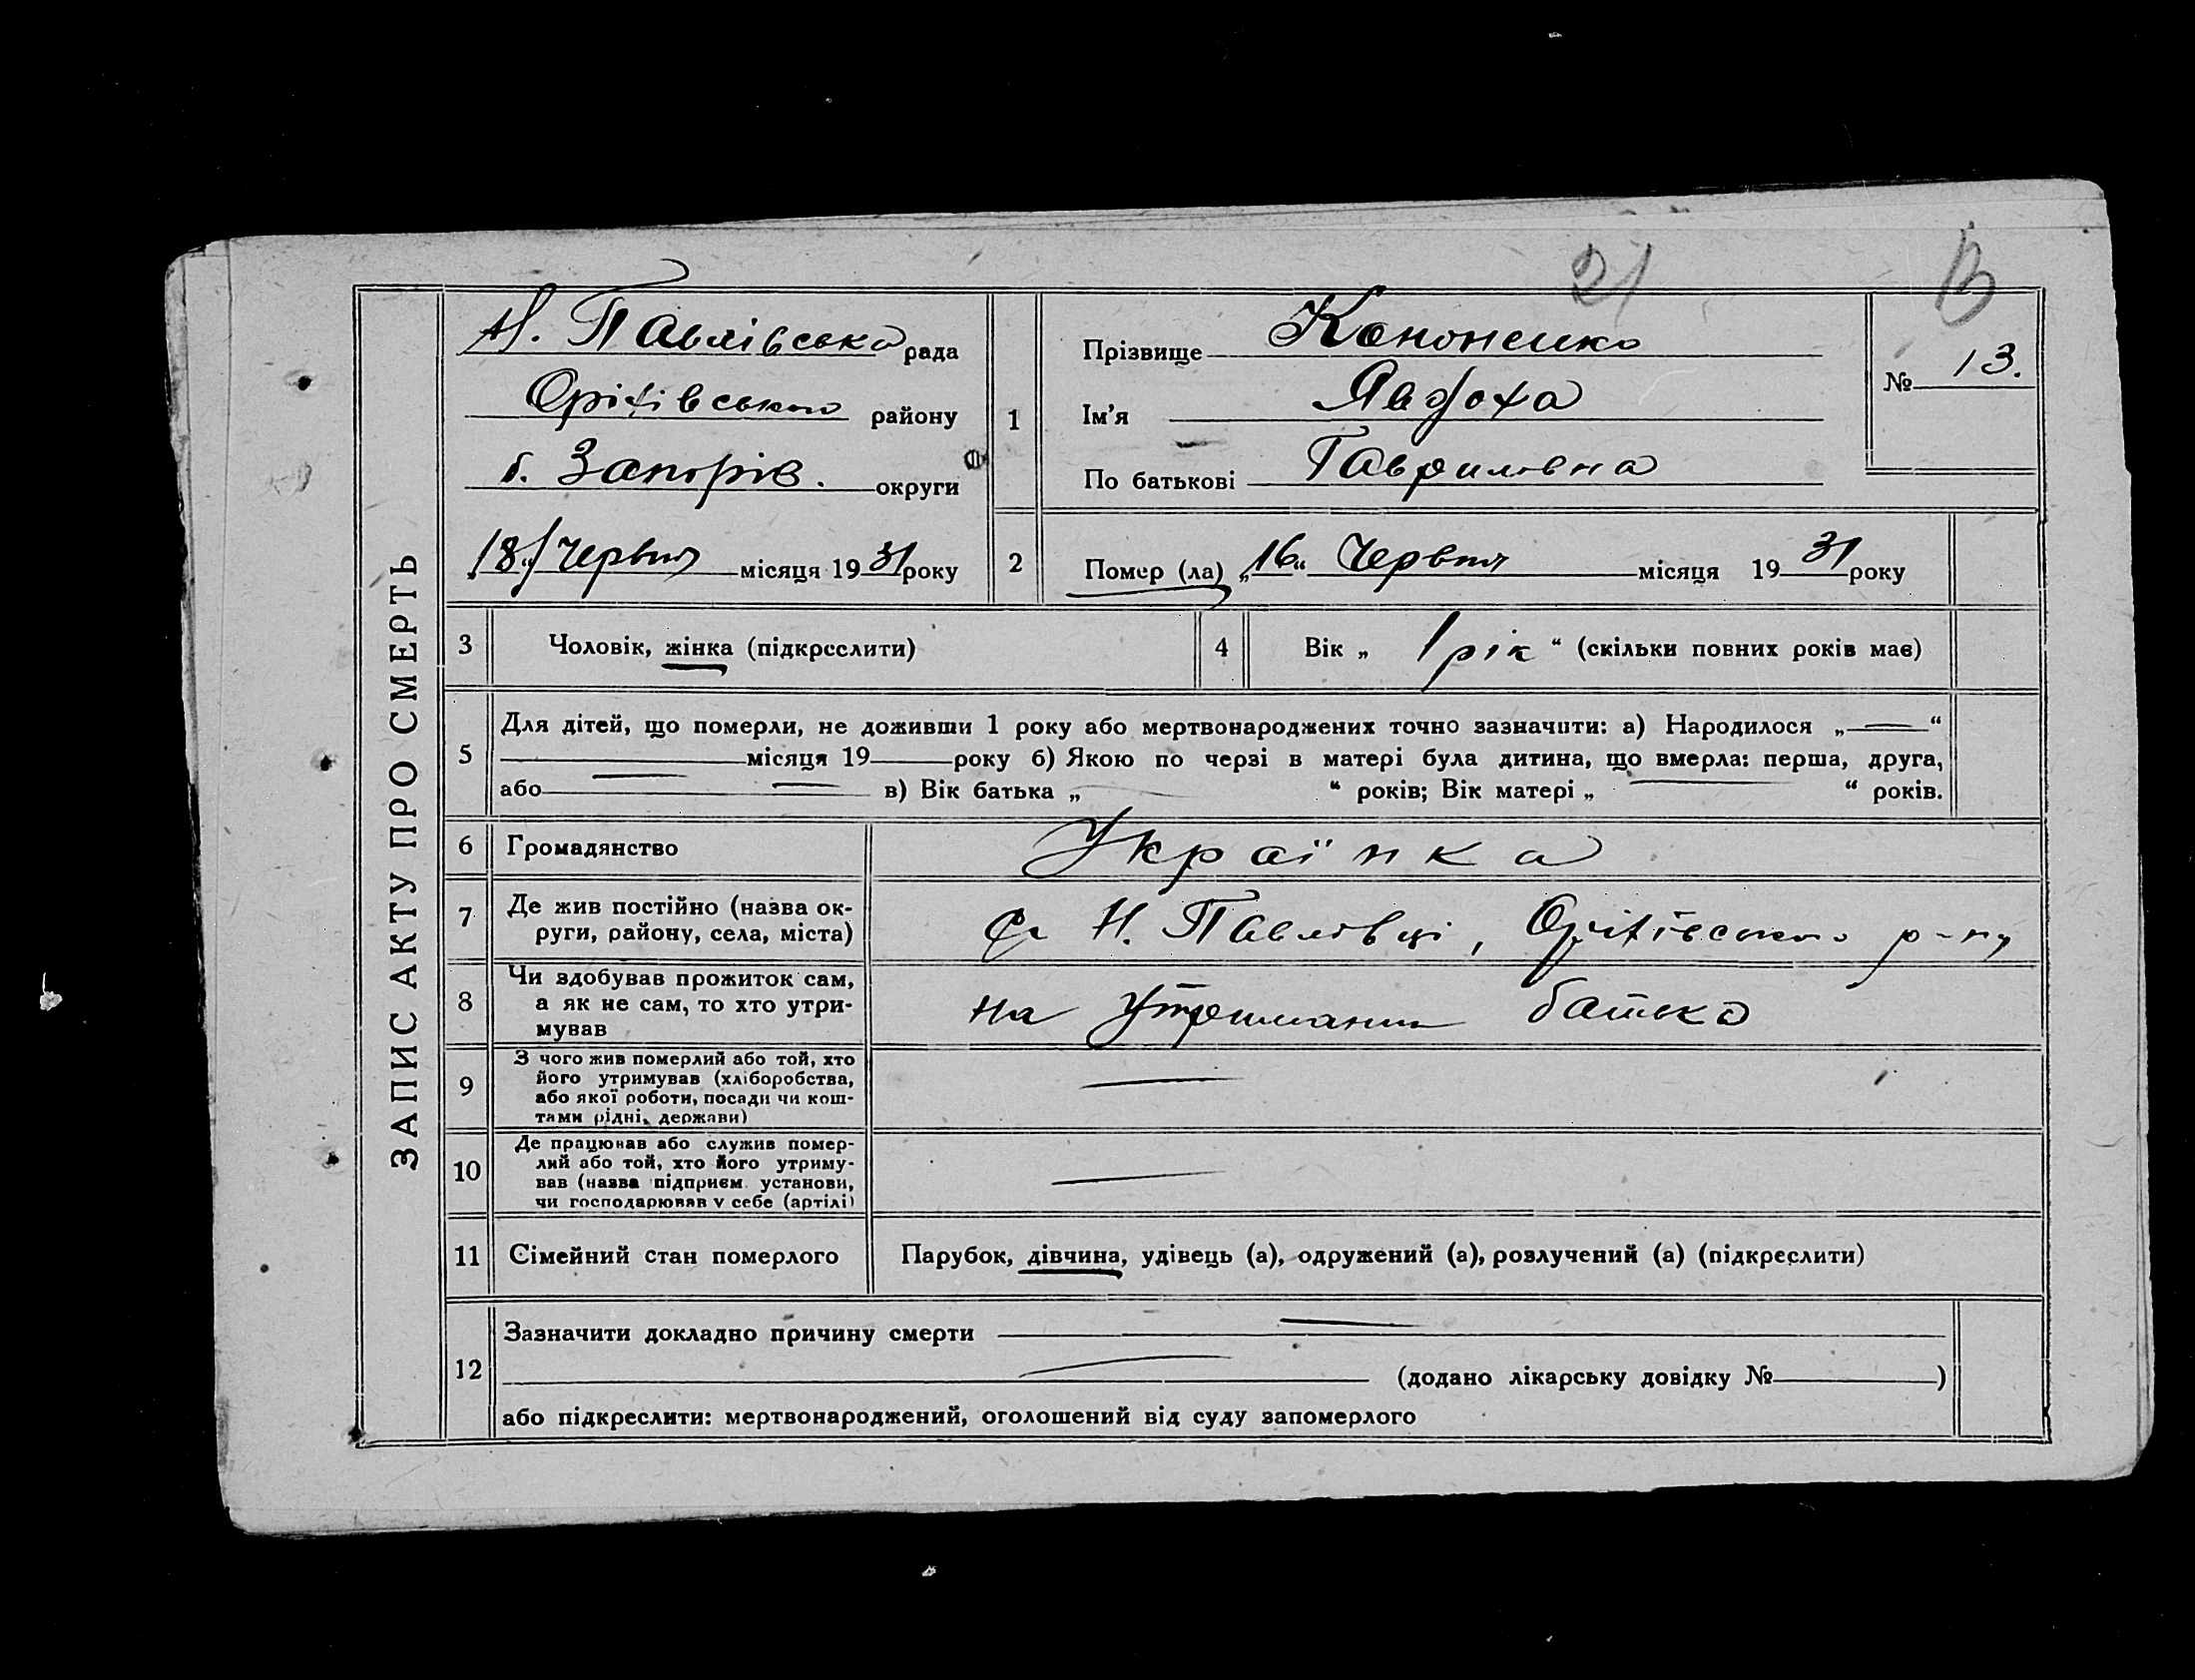 21 В
ЗАПИС АКТУ ПРО СМЕРТЬ
Н. Павлівська рада
Оріхівського району
б. Запоріз. округи
„18“ Червня місяця 1931 року
1
Прізвище Кононенко
Ім'я Явдоха
По батькові Гавриловна
№ 13.
2
Помер (ла) „16“ Червня місяця 1931 року
3 Чоловік, жінка (підкреслити)
4 Вік „1 рік“ (скільки повних років має)
5 Для дітей, що померли, не доживши 1 року або мертвонароджених точно зазначити: а) Народилося „——“
місяця 19 року б) Якою по черзі в матері була дитина, що вмерла: перша, друга,
або в) Вік батька „ “ років; Вік матері „ “ років.
6 Громадянство Українка
7 Де жив постійно (назва ок-
руги, району, села, міста)
с. Н. Павлівці, Оріхівського р-ну
8 Чи здобував прожиток сам,
а як не сам, то хто утри-
мував
на утриманні батька
9 З чого жив померлий або той, хто
його утримував (хліборобства,
або якої роботи, посади чи кош-
тами рідні, держави)
10 Де працював або служив помер-
лий або той, хто його утриму-
вав (назва підприєм. установи,
чи господарював у себе (артілі)
11 Сімейний стан померлого
Парубок, дівчина, удівець (а), одружений (а), розлучений (а) (підкреслити)
12 Зазначити докладно причину смерти
(додано лікарську довідку № )
або підкреслити: мертвонароджений, оголошений від суду запомерлого